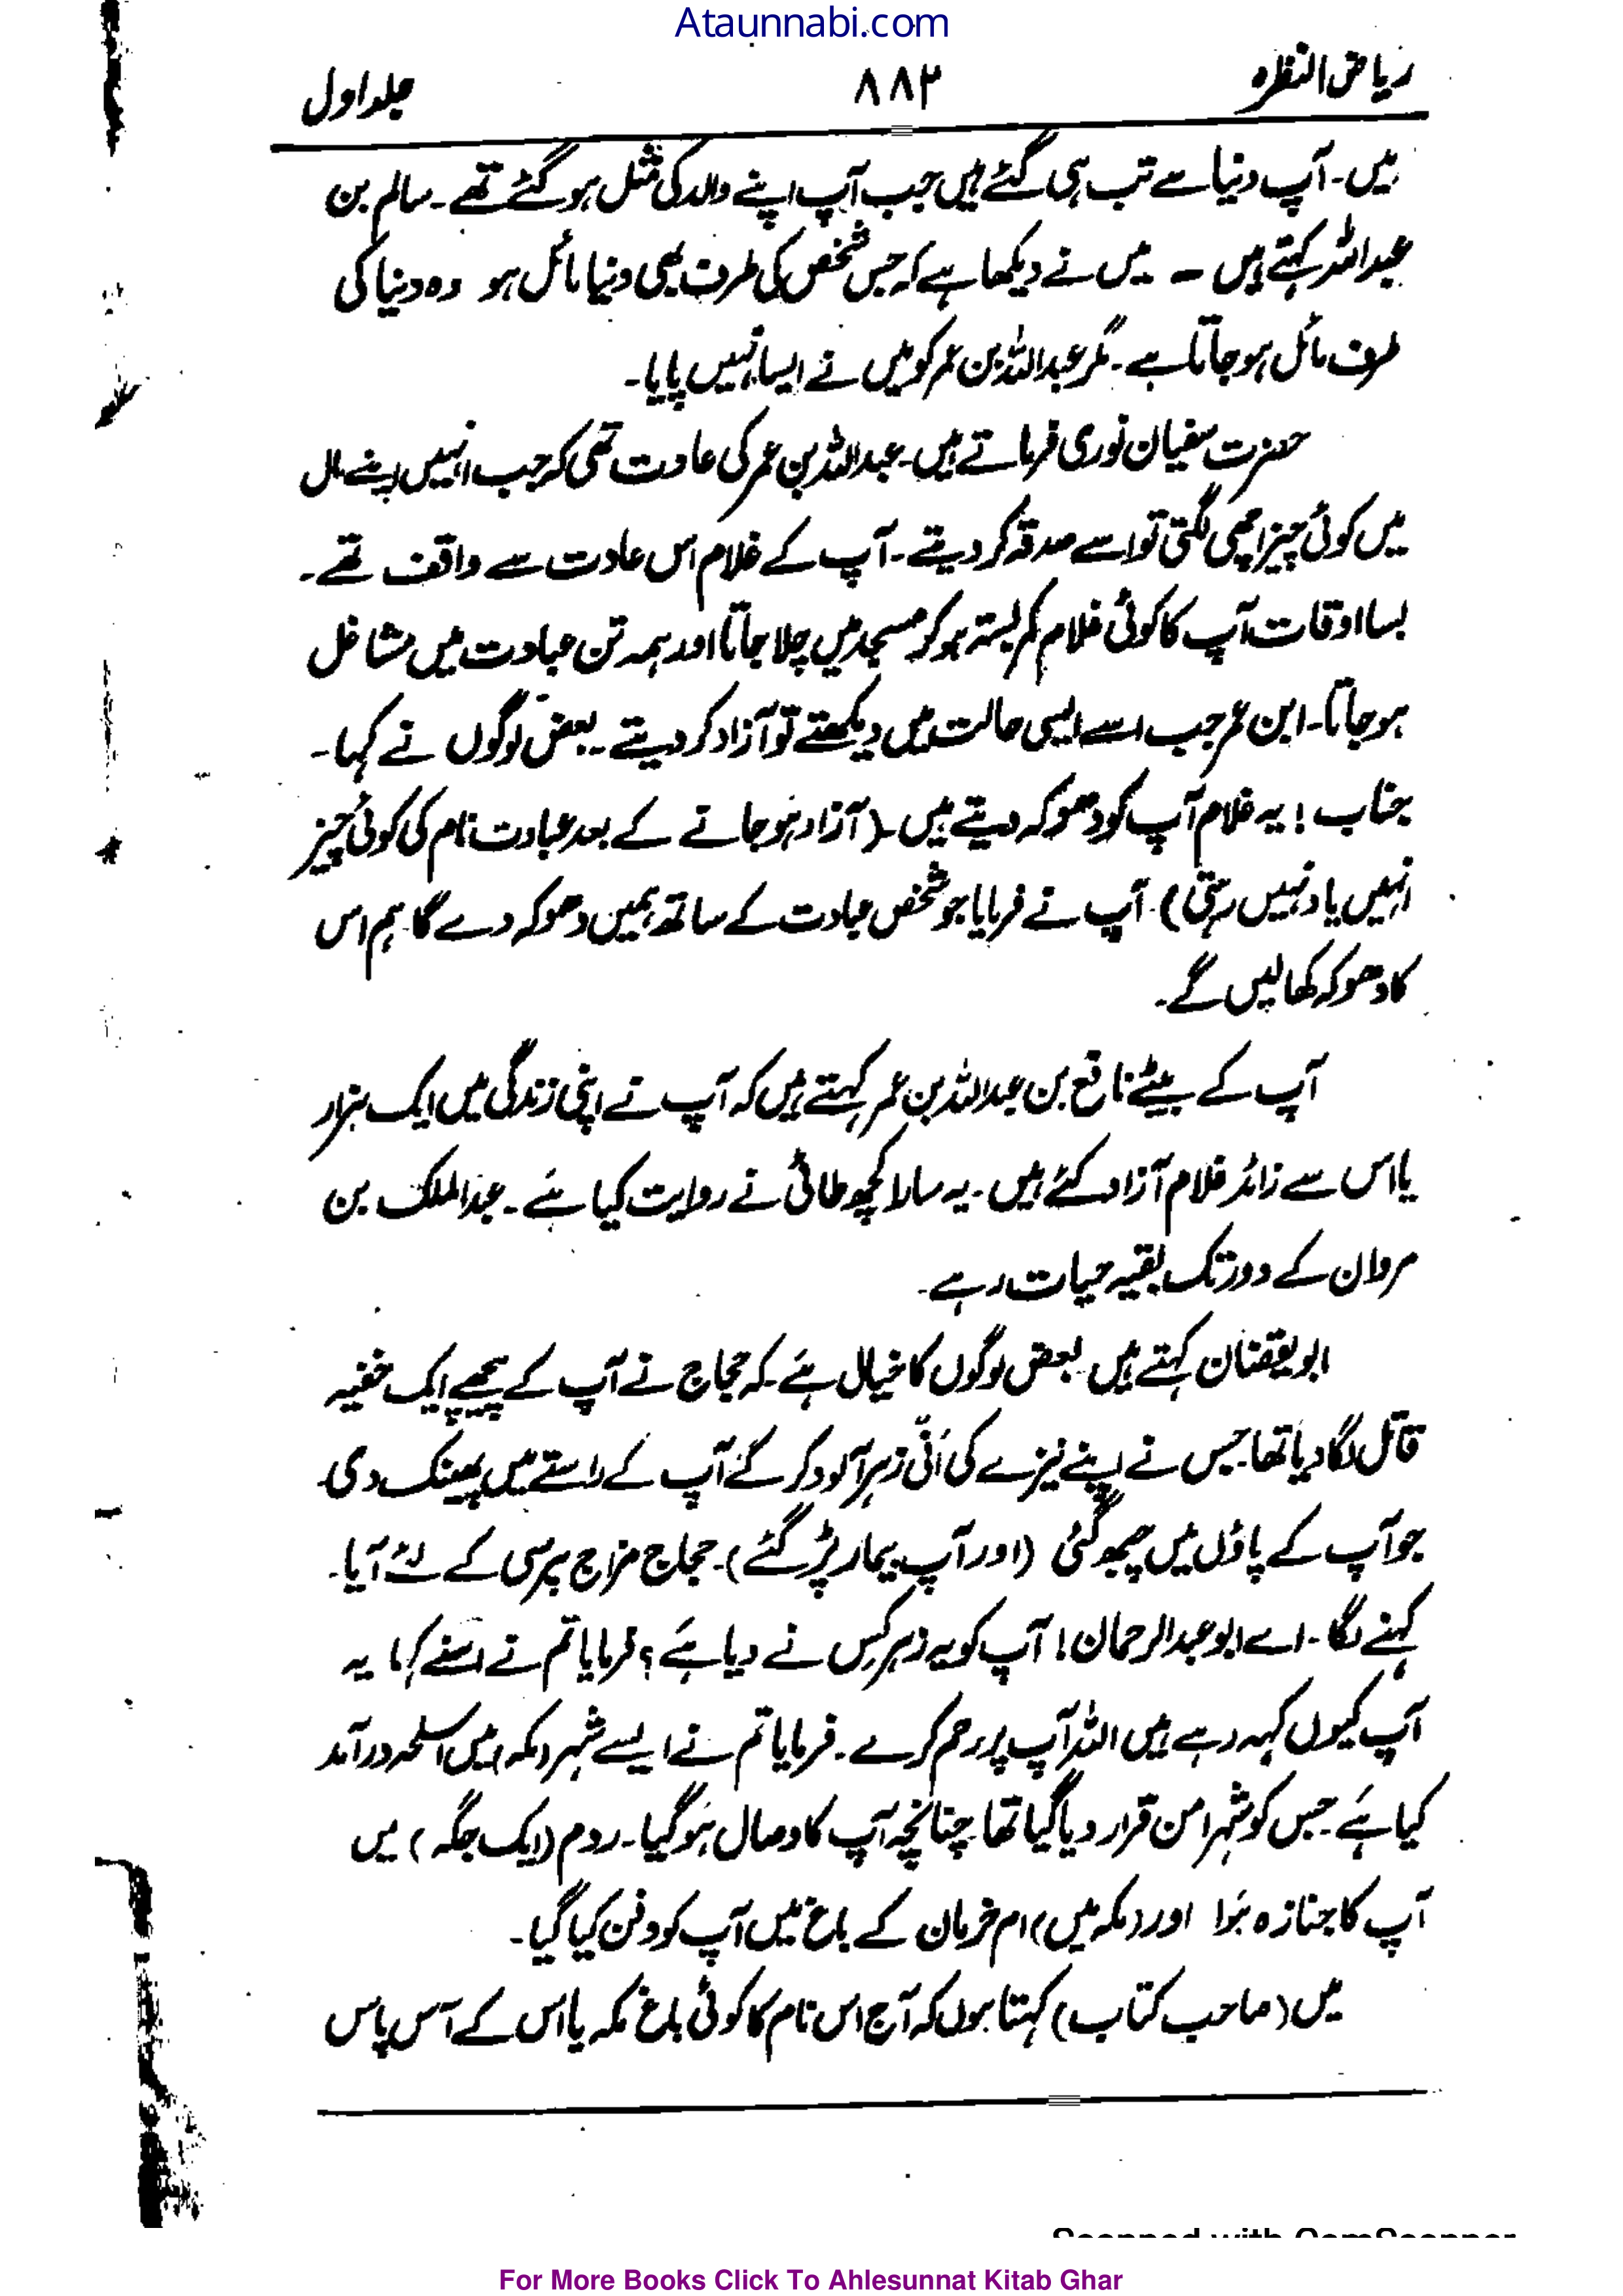 Ataunnabi.com
ریاض النظرہ ۸۸۲ جلد اول
ہیں۔ آپ دنیا سے تب ہی گئے ہیں جب آپ اپنے والد کی مثل ہو گئے تھے۔ سالم بن
عبداللہ کہتے ہیں ۔ میں نے دیکھا ہے کہ جس شخص کی طرف بھی دنیا مائل ہو وہ دنیا کی
طرف مائل ہو جاتا ہے۔ مگر عبداللہ بن عمر کو میں نے ایسا نہیں پایا۔
حضرت سفیان ثوری فرماتے ہیں۔ عبداللہ بن عمر کی عادت تھی کہ جب انہیں اپنے مال
میں کوئی چیز اچھی لگتی تو اسے صدقہ کر دیتے۔ آپ کے غلام اس عادت سے واقف تھے۔
بسا اوقات آپ کا کوئی غلام کمر بستہ ہو کر مسجد میں چلا جاتا اور ہمہ تن عبادت میں مشاغل
ہو جاتا۔ ابن عمر جب اسے ایسی حالت میں دیکھتے تو آزاد کر دیتے۔ بعض لوگوں نے کہا۔
جناب ! یہ غلام آپ کو دھوکہ دیتے ہیں۔ (آزاد ہو جانے کے بعد عبادت نام کی کوئی چیز
انہیں یاد نہیں رہتی) آپ نے فرمایا جو شخص عبادت کے ساتھ ہمیں دھوکہ دے گا ہم اس
کا دھوکہ کھا لیں گے۔
آپ کے بیٹے نافع بن عبداللہ بن عمر کہتے ہیں کہ آپ نے اپنی زندگی میں ایک ہزار
یا اس سے زائد غلام آزاد کئے ہیں۔ یہ سارا کچھ طائی نے روایت کیا ہے۔ عبدالملک بن
مروان کے دور تک بقیہ حیات رہے۔
ابو یقضان کہتے ہیں بعض لوگوں کا خیال ہے کہ حجاج نے آپ کے پیچھے ایک خفیہ
قاتل لگا دیا تھا جس نے اپنے نیزے کی اَنّی زہر آلود کر کے آپ کے راستے میں پھینک دی
جو آپ کے پاؤں میں چبھ گئی (اور آپ بیمار پڑ گئے)۔ حجاج مزاج پرسی کے لئے آیا۔
کہنے لگا۔ اے ابو عبدالرحمان! آپ کو یہ زہر کس نے دیا ہے؟ فرمایا تم نے اسنے کہا یہ
آپ کیوں کہہ رہے ہیں اللہ آپ پر رحم کرے۔ فرمایا تم نے ایسے شہر (مکہ) میں اسلحہ درآمد
کیا ہے۔ جس کو شہر امن قرار دیا گیا تھا چنانچہ آپ کا وصال ہو گیا۔ ردم (ایک جگہ) میں
آپ کا جنازہ ہوا اور (مکہ میں) ام خرمان کے باغ میں آپ کو دفن کیا گیا۔
میں (صاحب کتاب) کہتا ہوں کہ آج اس نام کا کوئی باغ مکہ یا اس کے آس پاس
Scanned with CamScanner
For More Books Click To Ahlesunnat Kitab Ghar